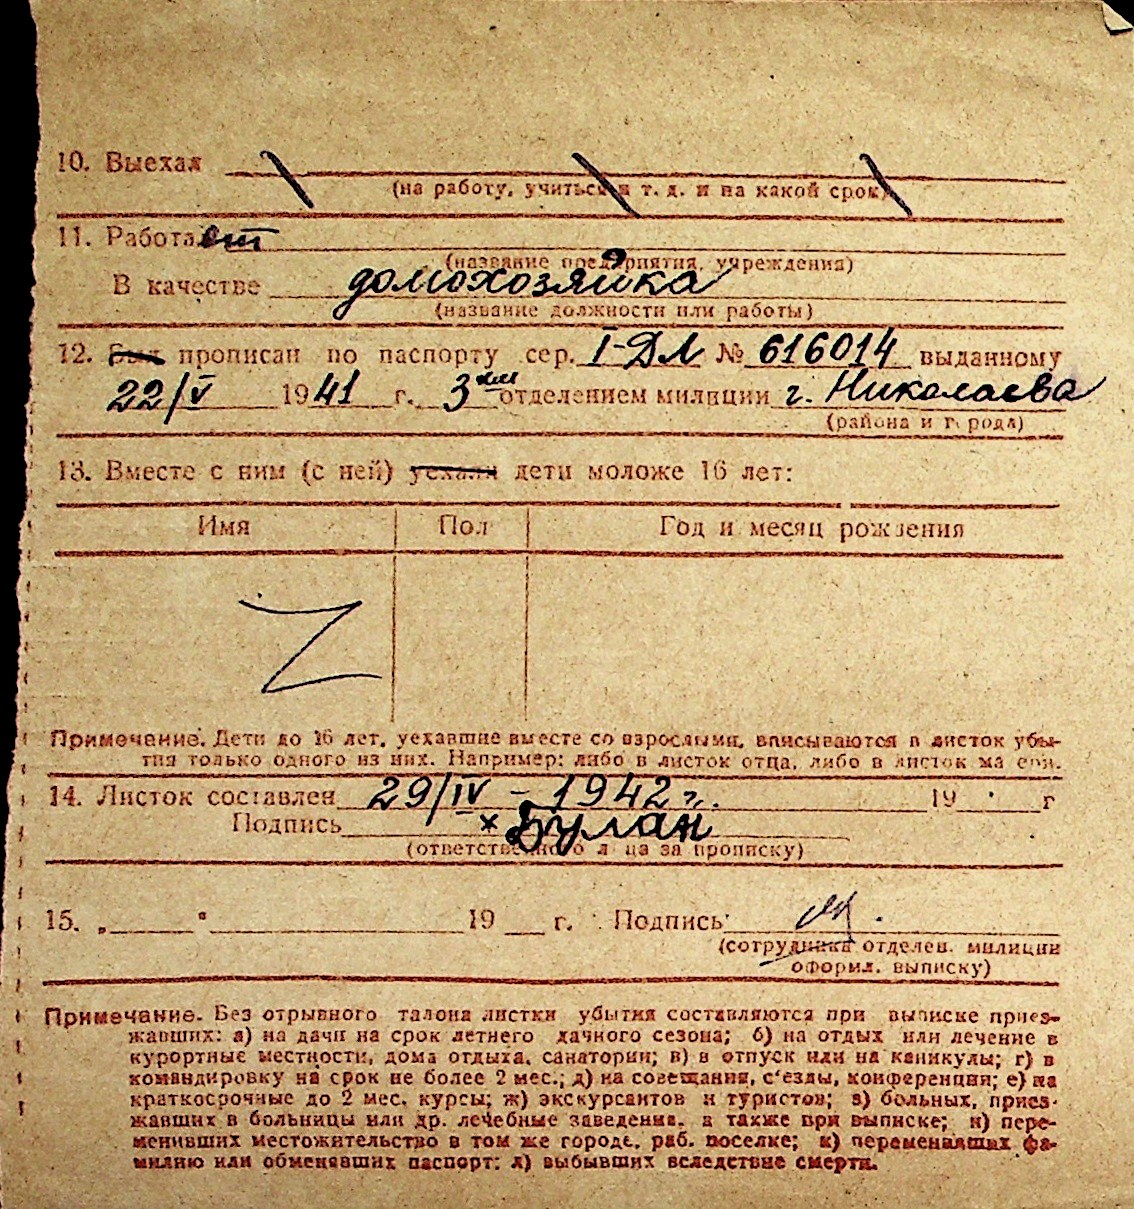 10. Выехал
(на работу, учиться и т. д. и на какой срок)
11. Работает
(название предприятия, учреждения)
В качестве домохозяйка
(название должности или работы)
12. Был прописан по паспорту сер. I-ДЛ № 616014 выданному
22/V 1941 г. 3 отделением милиции г. Николаева
(района и города)
13. Вместе с ним (с ней) уехали дети моложе 16 лет:
Имя Пол Год и месяц рождения
Z
Примечание. Дети до 16 лет, уехавшие вместе со взрослыми, вписываются в листок убы-
тия только одного из них. Например: либо в листок отца, либо в листок матери.
14. Листок составлен 29/IV - 1942 г. 19 г
Подпись × Булан
(ответственного лица за прописку)
15. „ “ 19 г. Подпись
(сотрудника отделен. милиции
оформл. выписку)
Примечание. Без отрывного талона листки убытия составляются при выписке приез-
жавших: а) на дачи на срок летнего дачного сезона; б) на отдых или лечение в
курортные местности, дома отдыха, санатории; в) в отпуск или на каникулы; г) в
командировку на срок не более 2 мес.; д) на совещания, с'езды, конференции; е) на
краткосрочные до 2 мес. курсы; ж) экскурсантов и туристов; з) больных, приез-
жавших в больницы или др. лечебные заведения, а также при выписке; и) пере-
менивших местожительство в том же городе, раб. поселке; к) переменявших фа-
милию или обменявших паспорт; л) выбывших вследствие смерти.